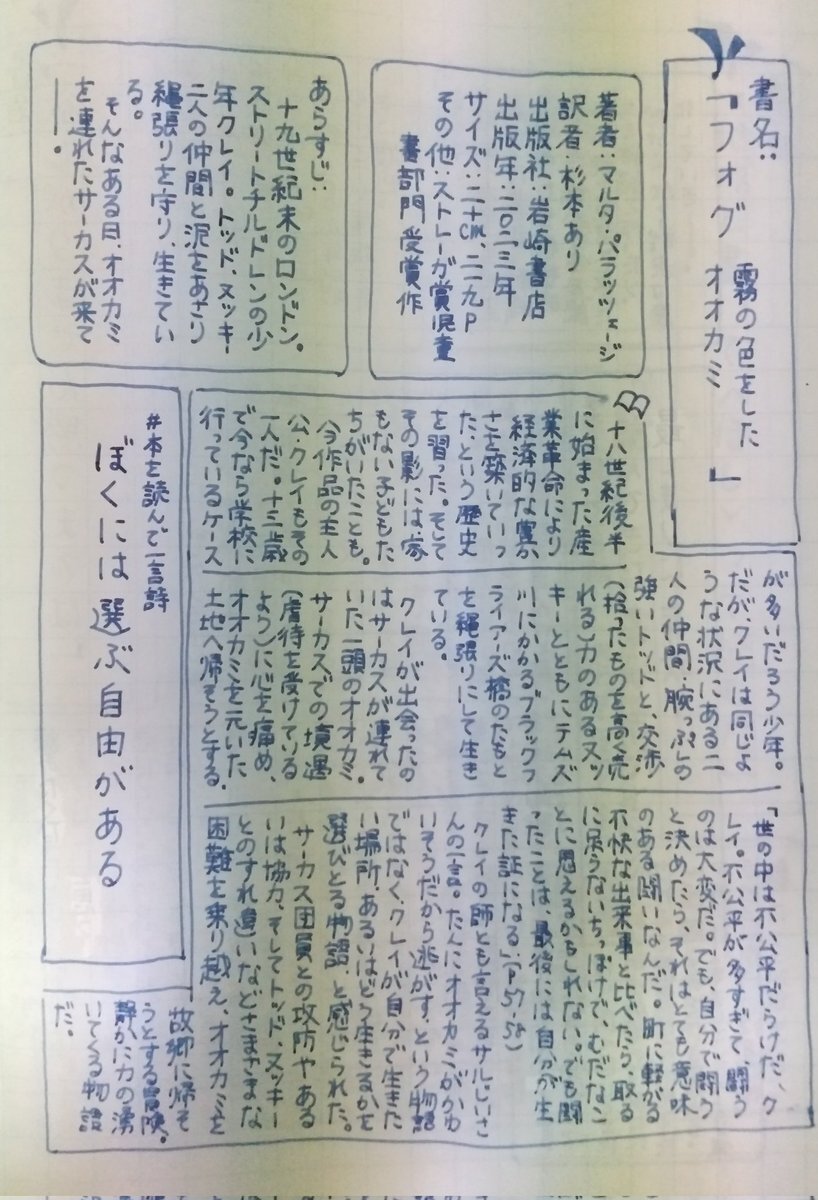 書名:
『フォグ
霧の色をした
オオカミ
』
著者:マルタ・パラッツェージ
訳者:杉本あり
出版社:岩崎書店
出版年:二〇二三年
サイズ:二十cm、二二九P
その他:ストレーガ賞児童
書部門受賞作
あらすじ:
十九世紀末のロンドン。
ストリートチルドレンの少
年クレイ。トッド、ヌッキー
二人の仲間と泥をあさり
縄張りを守り、生きてい
る。
そんなある日、オオカミ
を連れたサーカスが来て
―。
十八世紀後半
に始まった産
業革命により
経済的な豊か
さを築いていっ
た、という歴史
を習った。そして
その影には家
もない子どもた
ちがいたことも。
今作品の主人
公・クレイもその
一人だ。十三歳
で今なら学校に
行っているケース
が多いだろう少年。
だが、クレイは同じよ
うな状況にある二
人の仲間・腕っぷしの
強いトッドと、交渉
(拾ったものを高く売
れる)力のあるヌッ
キーとともにテムズ
川にかかるブラックフ
ライアーズ橋のたもと
を縄張りにして生き
ている。
クレイが出会ったの
はサーカスが連れて
いた一頭のオオカミ。
サーカスでの境遇
(虐待を受けている
よう)に心を痛め、
オオカミを元いた
土地へ帰そうとする。
「世の中は不公平だらけだ、ク
レイ。不公平が多すぎて、闘う
のは大変だ。でも、自分で闘う
と決めたら、それはとても意味
のある闘いなんだ。町に轟がる
不快な出来事と比べたら、取る
に足らないちっぽけで、むだなこ
とに思えるかもしれない。でも闘
ったことは、最後には自分が生
きた証になる」(P57、58)
クレイの師とも言えるサルじいさ
んの一言。たんにオオカミがかわ
いそうだから逃がす、という物語
ではなく、クレイが自分で生きた
い場所、あるいはどう生きるかを
選びとる物語、と感じられた。
サーカス団員との攻防やある
いは協力、そしてトッド、ヌッキー
とのすれ違いなどさまざまな
困難を乗り越え、オオカミを
故郷に帰そ
うとする冒険。
静かに力の湧
いてくる物語
だ。
#本を読んで一言詩
ぼくには選ぶ自由がある